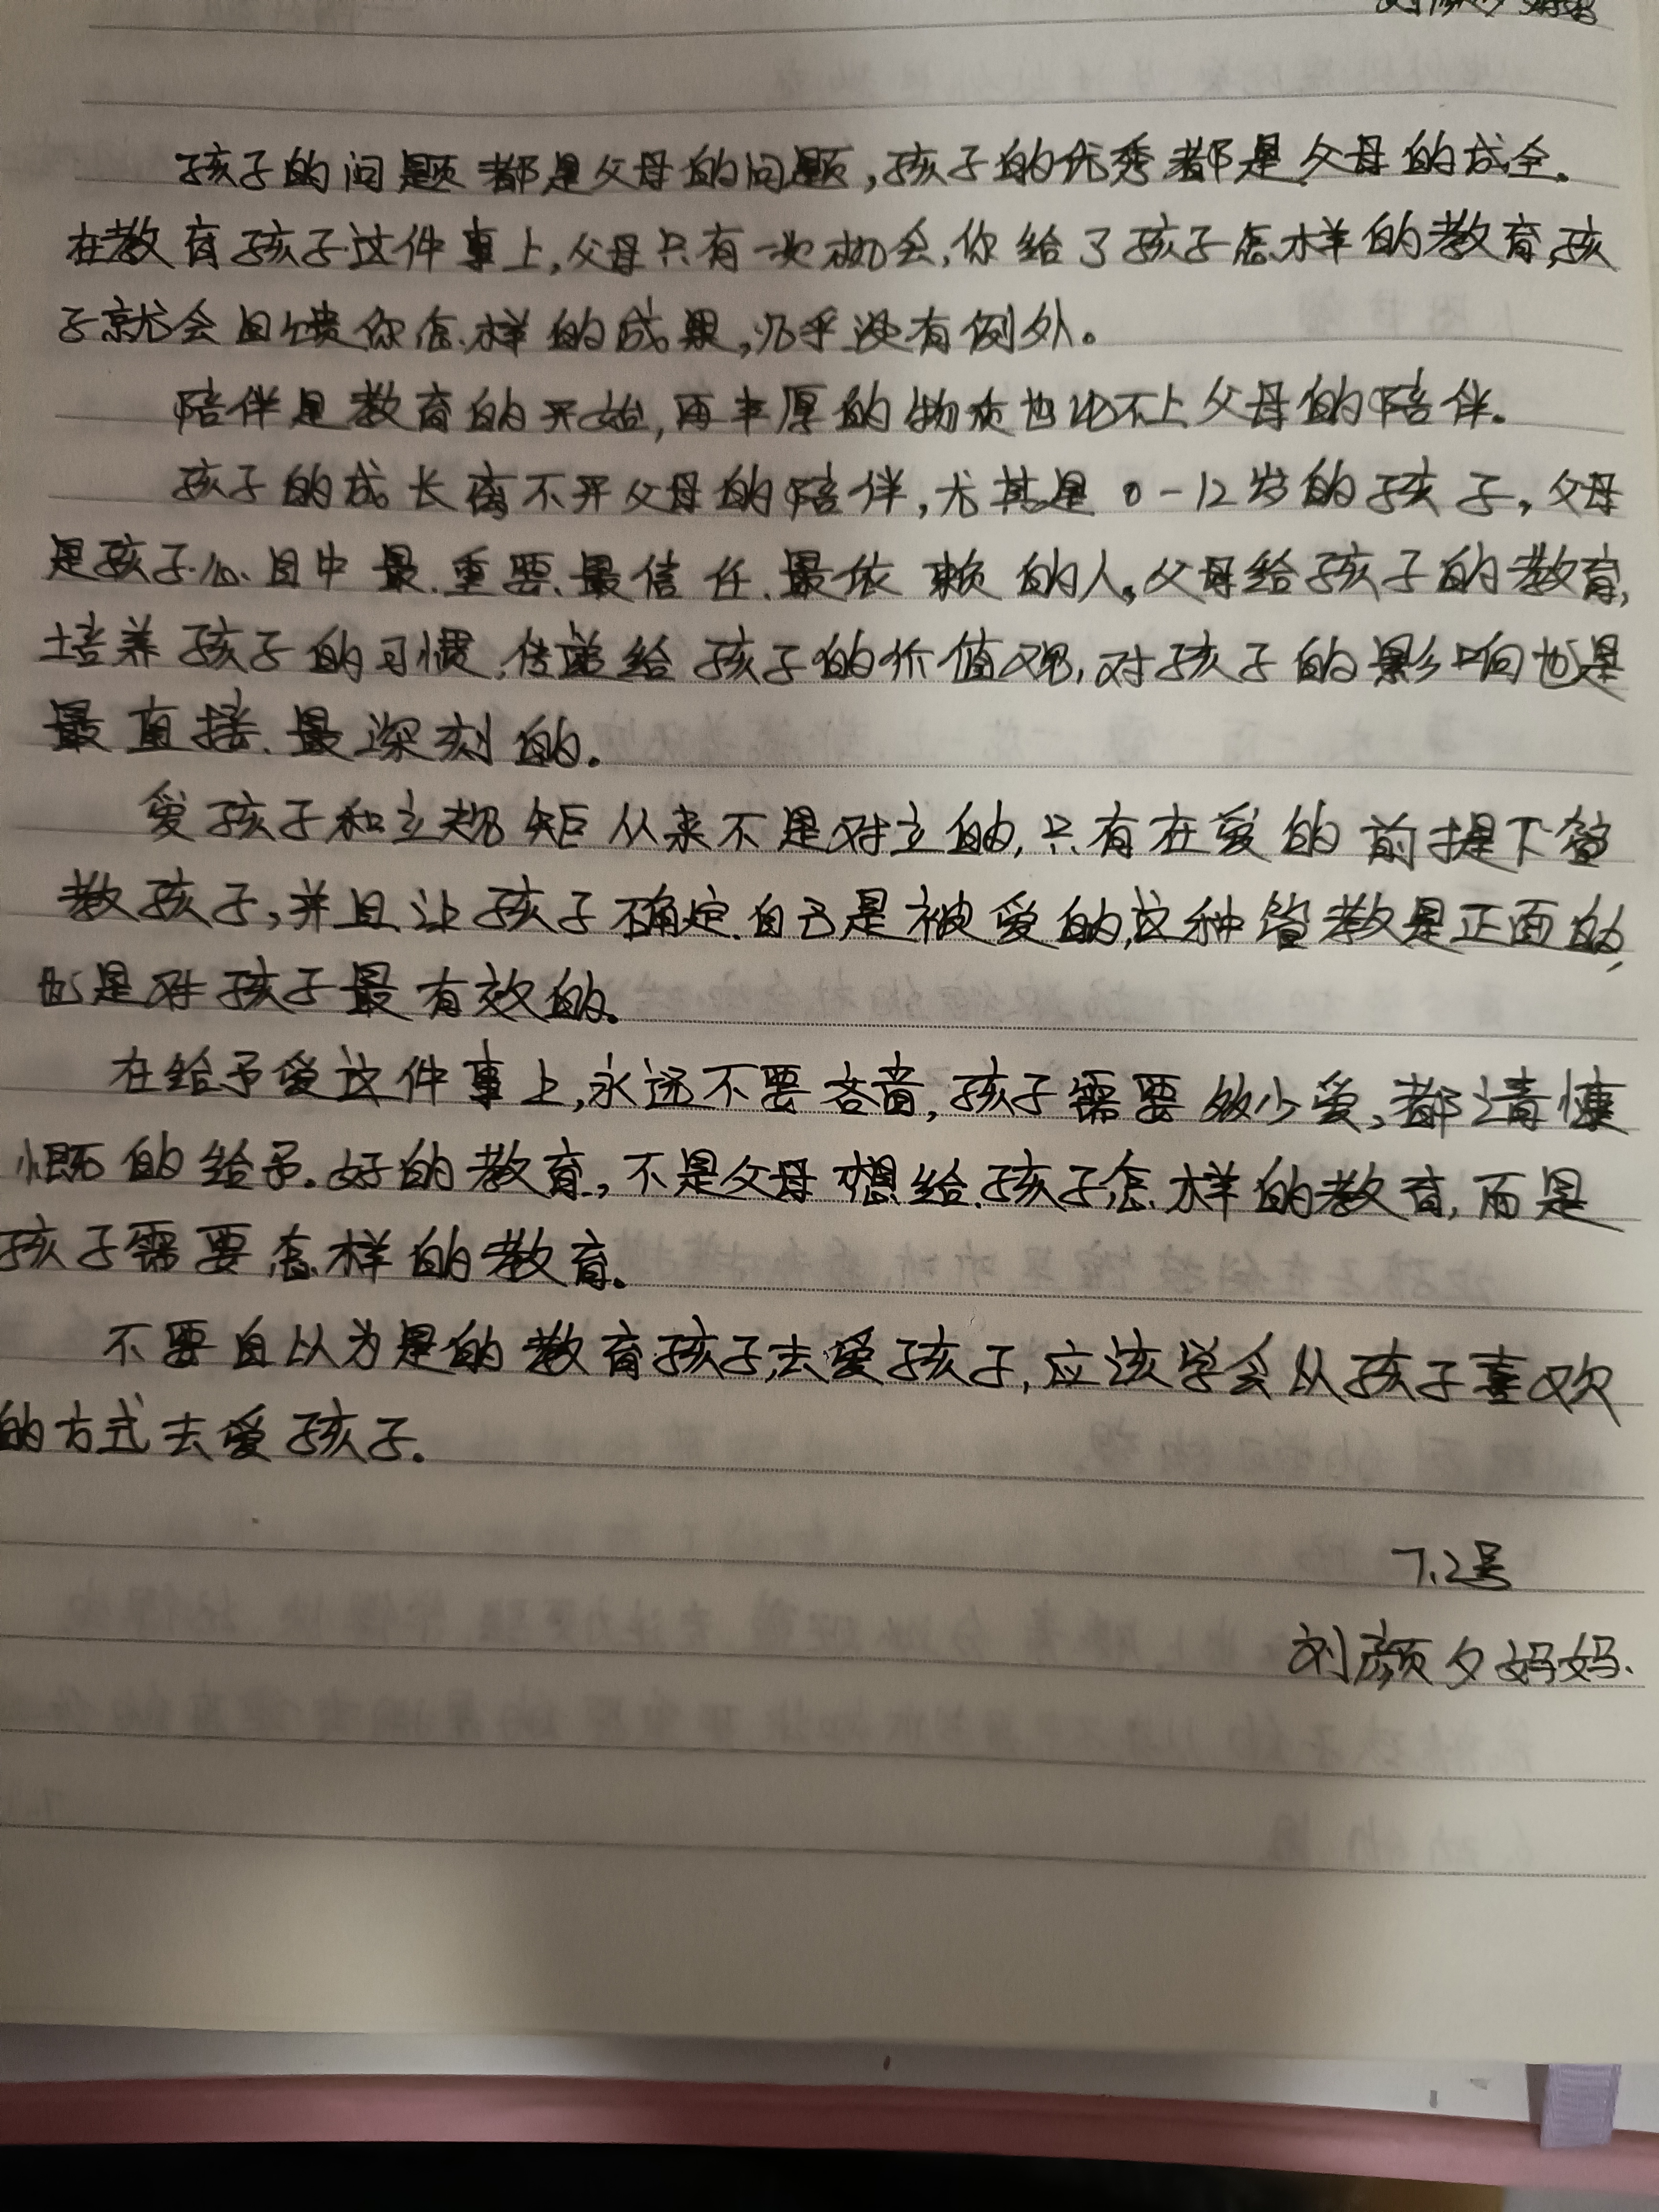 刘颜夕妈妈
孩子的问题都是父母的问题,孩子的优秀都是父母的成全.
在教育孩子这件事上,父母只有一次机会,你给了孩子怎样的教育,孩
子就会回馈你怎样的成果,几乎没有例外。
陪伴是教育的开始,再丰厚的物质也比不上父母的陪伴.
孩子的成长离不开父母的陪伴,尤其是0-12岁的孩子,父母
是孩子心目中最重要、最信任、最依赖的人,父母给孩子的教育,
培养孩子的习惯,传递给孩子的价值观,对孩子的影响也是
最直接、最深刻的.
爱孩子和立规矩从来不是对立的,只有在爱的前提下管
教孩子,并且让孩子确定自己是被爱的,这种管教是正面的,
也是对孩子最有效的.
在给予爱这件事上,永远不要吝啬,孩子需要多少爱,都请慷
慨的给予.好的教育,不是父母想给孩子怎样的教育,而是
孩子需要怎样的教育.
不要自以为是的教育孩子,去爱孩子,应该学会从孩子喜欢
的方式去爱孩子.
7.2号
刘颜夕妈妈.